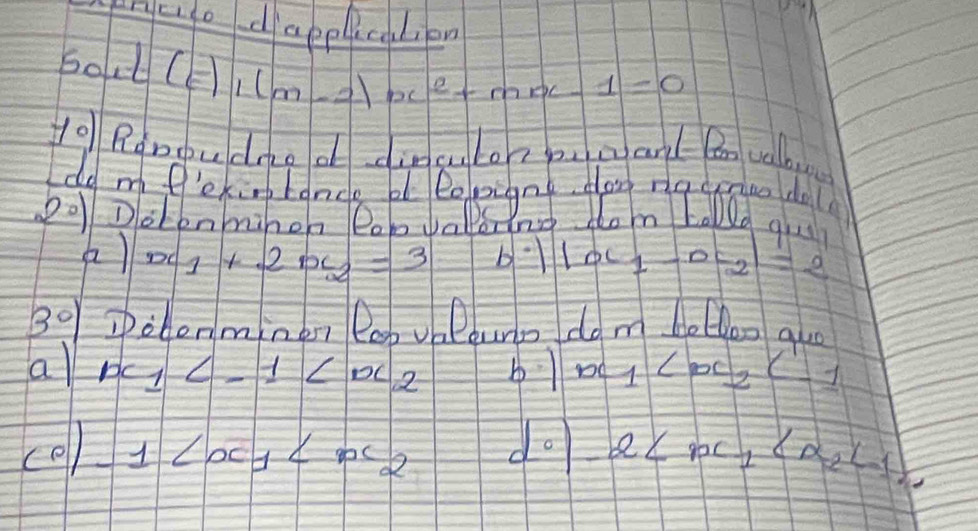 Exercice d'application
Soit (E) : (m-2)x²+mx-1=0
1°) Résoudre et discuter suivant les valeurs
de m l'existence et le signe des racines de (E)
2°) Déterminer les valeurs de m telle que
a) x₁ + 2x₂ = 3 b) |x₁ - x₂| = 2
3°) Déterminer les valeurs de m telles que
a) x₁ < -1 < x₂ b) x₁ < x₂ < -1
c°) -1 < x₁ < x₂ d°) -2 < x₁ < x₂ < -1